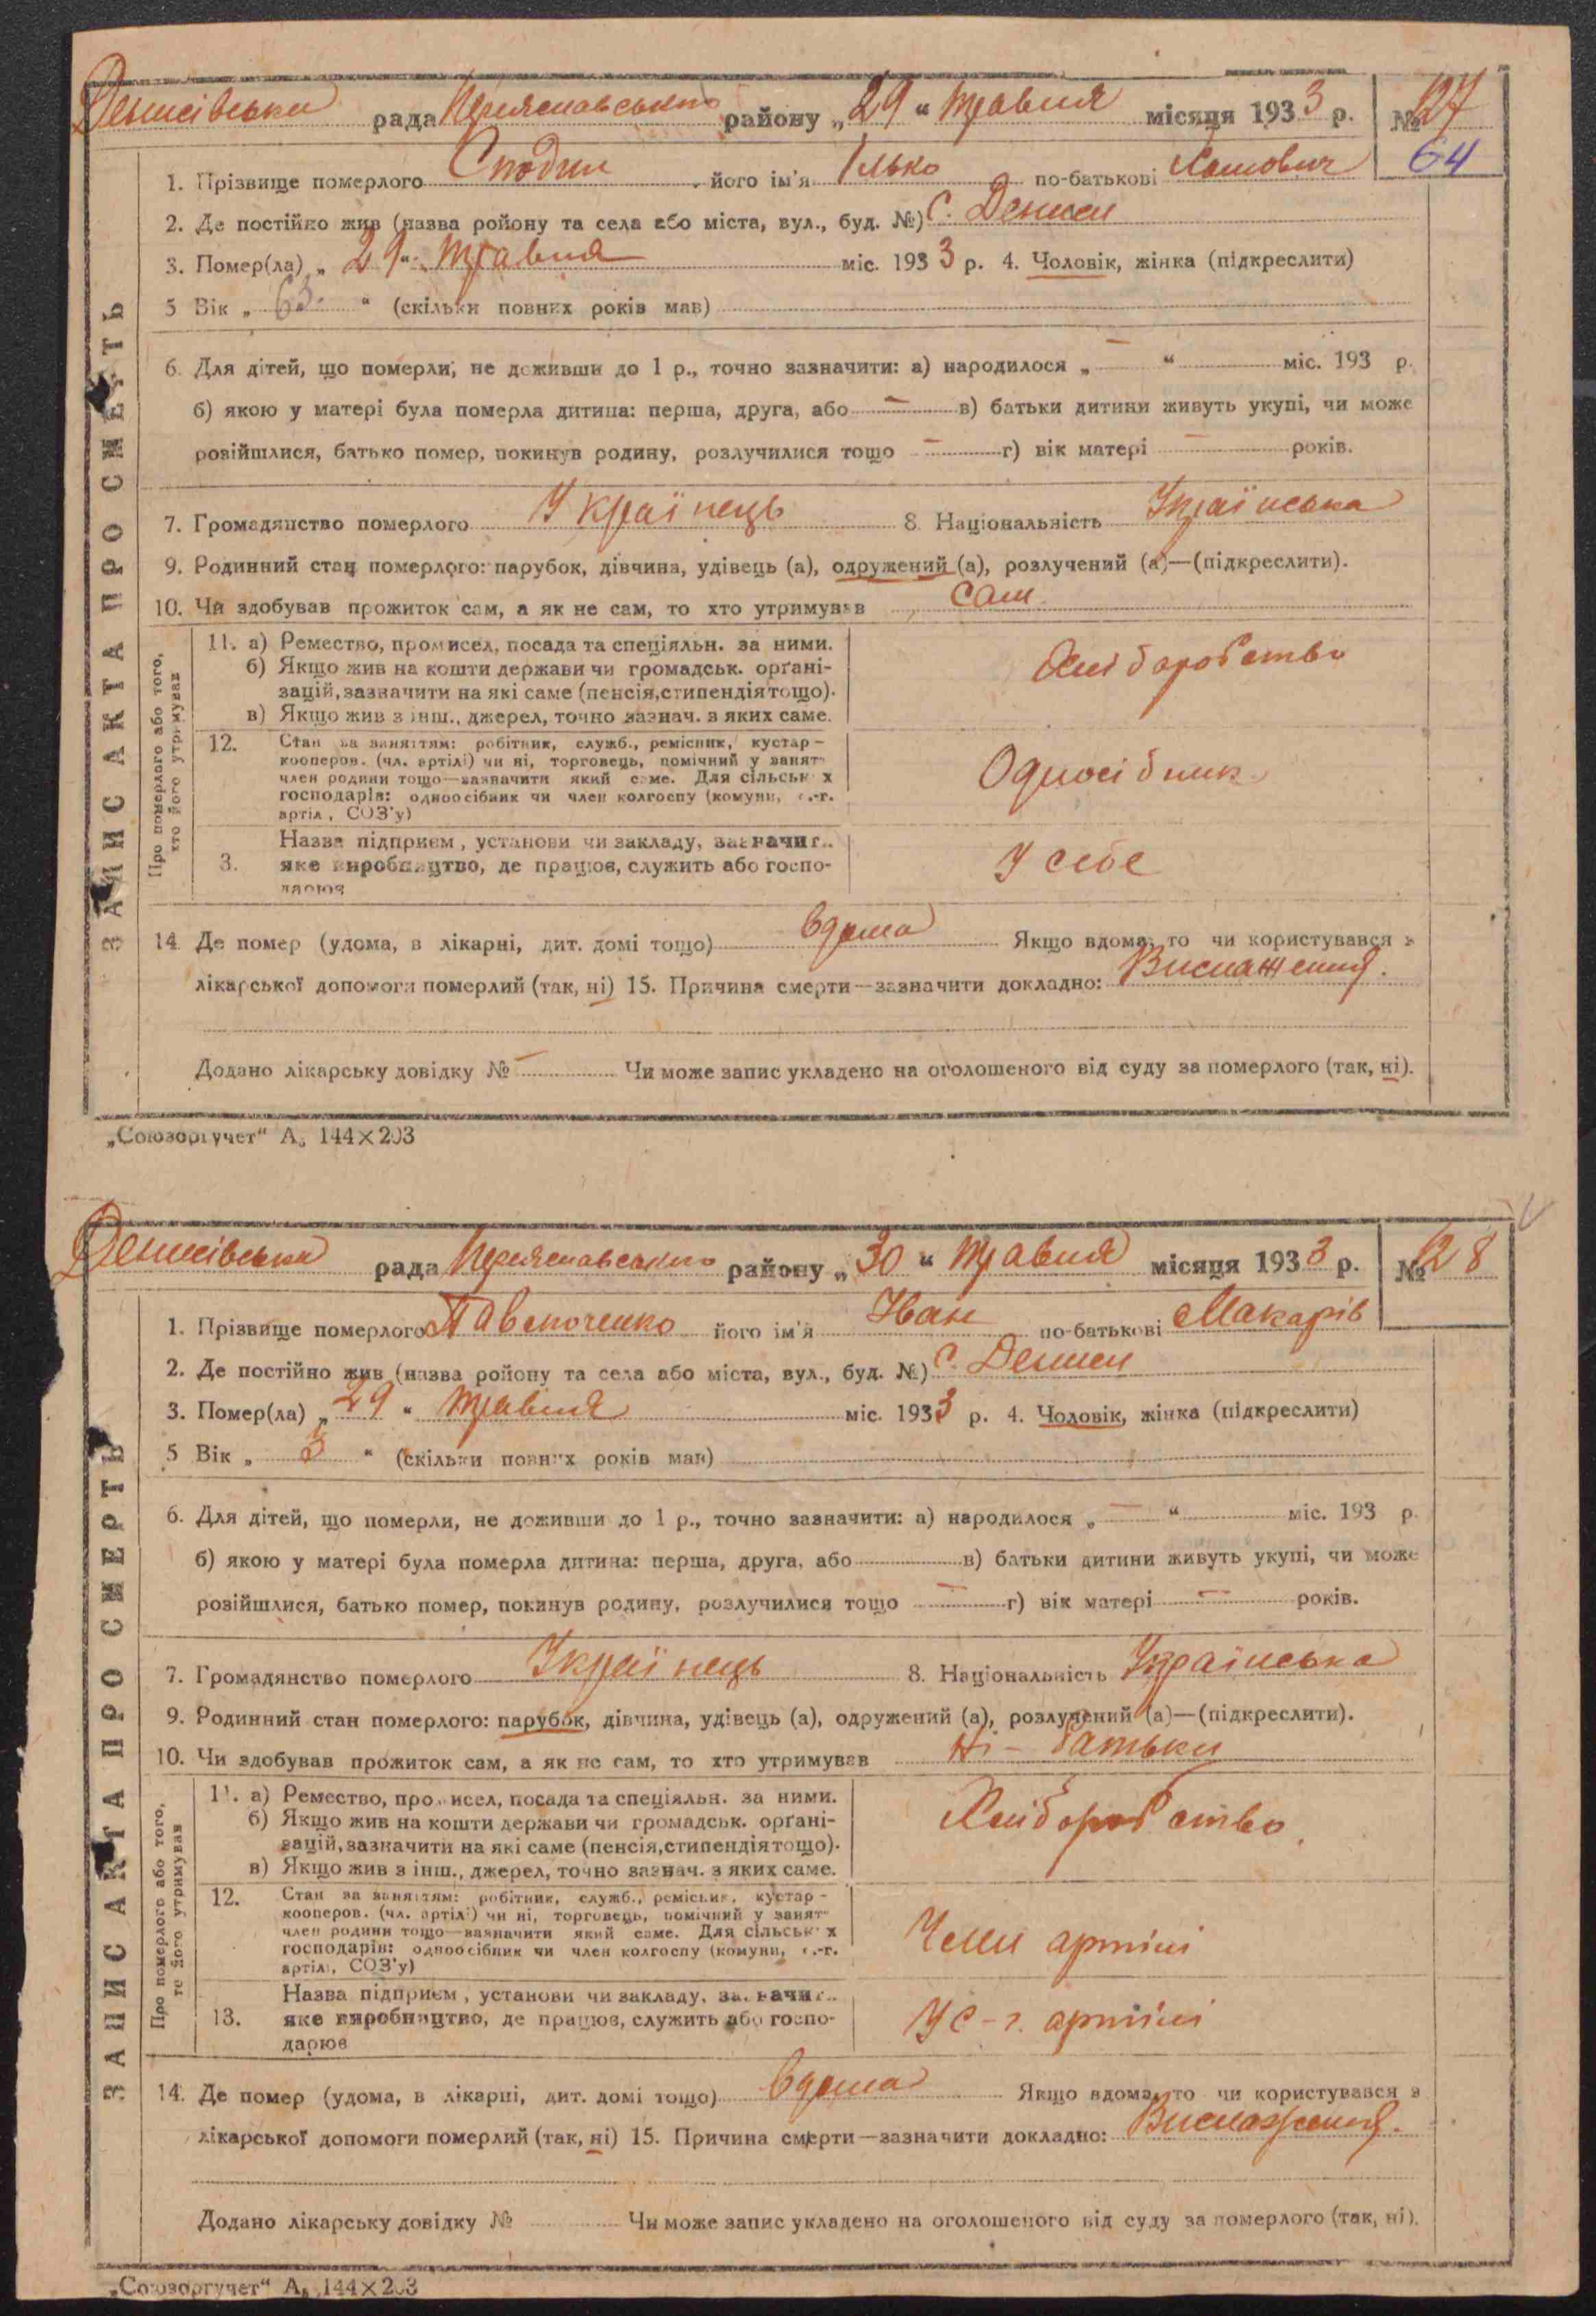 Денисівська рада Переяславського району „29“ травня місяця 1933 р. № 127
64
1. Прізвище померлого Сподин його ім'я Ілько по-батькові
2. Де постійно жив (назва ройону та села або міста, вул., буд. №) С. Дениси
3. Помер(ла) „29“ травня міс. 1933 р. 4. Чоловік, жінка (підкреслити)
5 Вік „63“ (скільки повних років мав)
6. Для дітей, що померли, не доживши до 1 р., точно зазначити: а) народилося „—“ міс. 193 р.
б) якою у матері була померла дитина: перша, друга, або — в) батьки дитини живуть укупі, чи може
розійшлися, батько помер, покинув родину, розлучилися тощо — г) вік матері — років.
7. Громадянство померлого Українець 8. Національність Українська
9. Родинний стан померлого: парубок, дівчина, удівець (а), одружений (а), розлучений (а)—(підкреслити).
10. Чи здобував прожиток сам, а як не сам, то хто утримував сам
ЗАПИС АКТА ПРО СМЕРТЬ
Про померлого або того, хто його утримував
11. а) Ремество, промисел, посада та спеціяльн. за ними.
б) Якщо жив на кошти держави чи громадськ. орґані-
зацій, зазначити на які саме (пенсія, стипендія тощо).
в) Якщо жив з інш., джерел, точно зазнач. з яких саме.
Хліборобство
12. Стан за заняттям: робітник, служб., ремісник, кустар-
кооперов. (чл. артілі) чи ні, торговець, помічний у занят
член родини тощо—зазначити який саме. Для сільськ х
господарів: одноосібник чи член колгоспу (комуни, с.-г.
артіл, СОЗ'у)
Одноосібник
3. Назва підприєм, установи чи закладу, зазначит..
яке виробництво, де працює, служить або госпо-
дарює
У себе
14. Де помер (удома, в лікарні, дит. домі тощо) вдома Якщо вдома, то чи користувався з
лікарської допомоги померлий (так, ні) 15. Причина смерти—зазначити докладно: Виснаження.
Додано лікарську довідку № — Чи може запис укладено на оголошеного від суду за померлого (так, ні).
„Союзоргучет“ А₅ 144×203
Денисівська рада Переяславського району „30“ травня місяця 1933 р. № 128
1. Прізвище померлого Павлюченко його ім'я Іван по-батькові Макарів
2. Де постійно жив (назва ройону та села або міста, вул., буд. №) С. Дениси
3. Помер(ла) „29“ травня міс. 1933 р. 4. Чоловік, жінка (підкреслити)
5 Вік „3“ (скільки повних років мав)
6. Для дітей, що померли, не доживши до 1 р., точно зазначити: а) народилося „—“ міс. 193 р.
б) якою у матері була померла дитина: перша, друга, або в) батьки дитини живуть укупі, чи може
розійшлися, батько помер, покинув родину, розлучилися тощо — г) вік матері — років.
7. Громадянство померлого Українець 8. Національність Українська
9. Родинний стан померлого: парубок, дівчина, удівець (а), одружений (а), розлучений (а)—(підкреслити).
10. Чи здобував прожиток сам, а як не сам, то хто утримував Ні – батьки
ЗАПИС АКТА ПРО СМЕРТЬ
Про померлого або того, хто його утримував
11. а) Ремество, промисел, посада та спеціяльн. за ними.
б) Якщо жив на кошти держави чи громадськ. орґані-
зацій, зазначити на які саме (пенсія, стипендія тощо).
в) Якщо жив з інш., джерел, точно зазнач. з яких саме.
Хліборобство
12. Стан за заняттям: робітник, служб., ремісник, кустар-
кооперов. (чл. артілі) чи ні, торговець, помічний у занят
член родини тощо—зазначити який саме. Для сільськ х
господарів: одноосібник чи член колгоспу (комуни, с.-г.
артіл, СОЗ'у)
Член артілі
13. Назва підприєм, установи чи закладу, зазначит..
яке виробництво, де працює, служить або госпо-
дарює
У с-г. артілі
14. Де помер (удома, в лікарні, дит. домі тощо) вдома Якщо вдома, то чи користувався з
лікарської допомоги померлий (так, ні) 15. Причина смерти—зазначити докладно: Виснаження.
Додано лікарську довідку № Чи може запис укладено на оголошеного від суду за померлого (так, ні).
„Союзоргучет“ А₅ 144×203